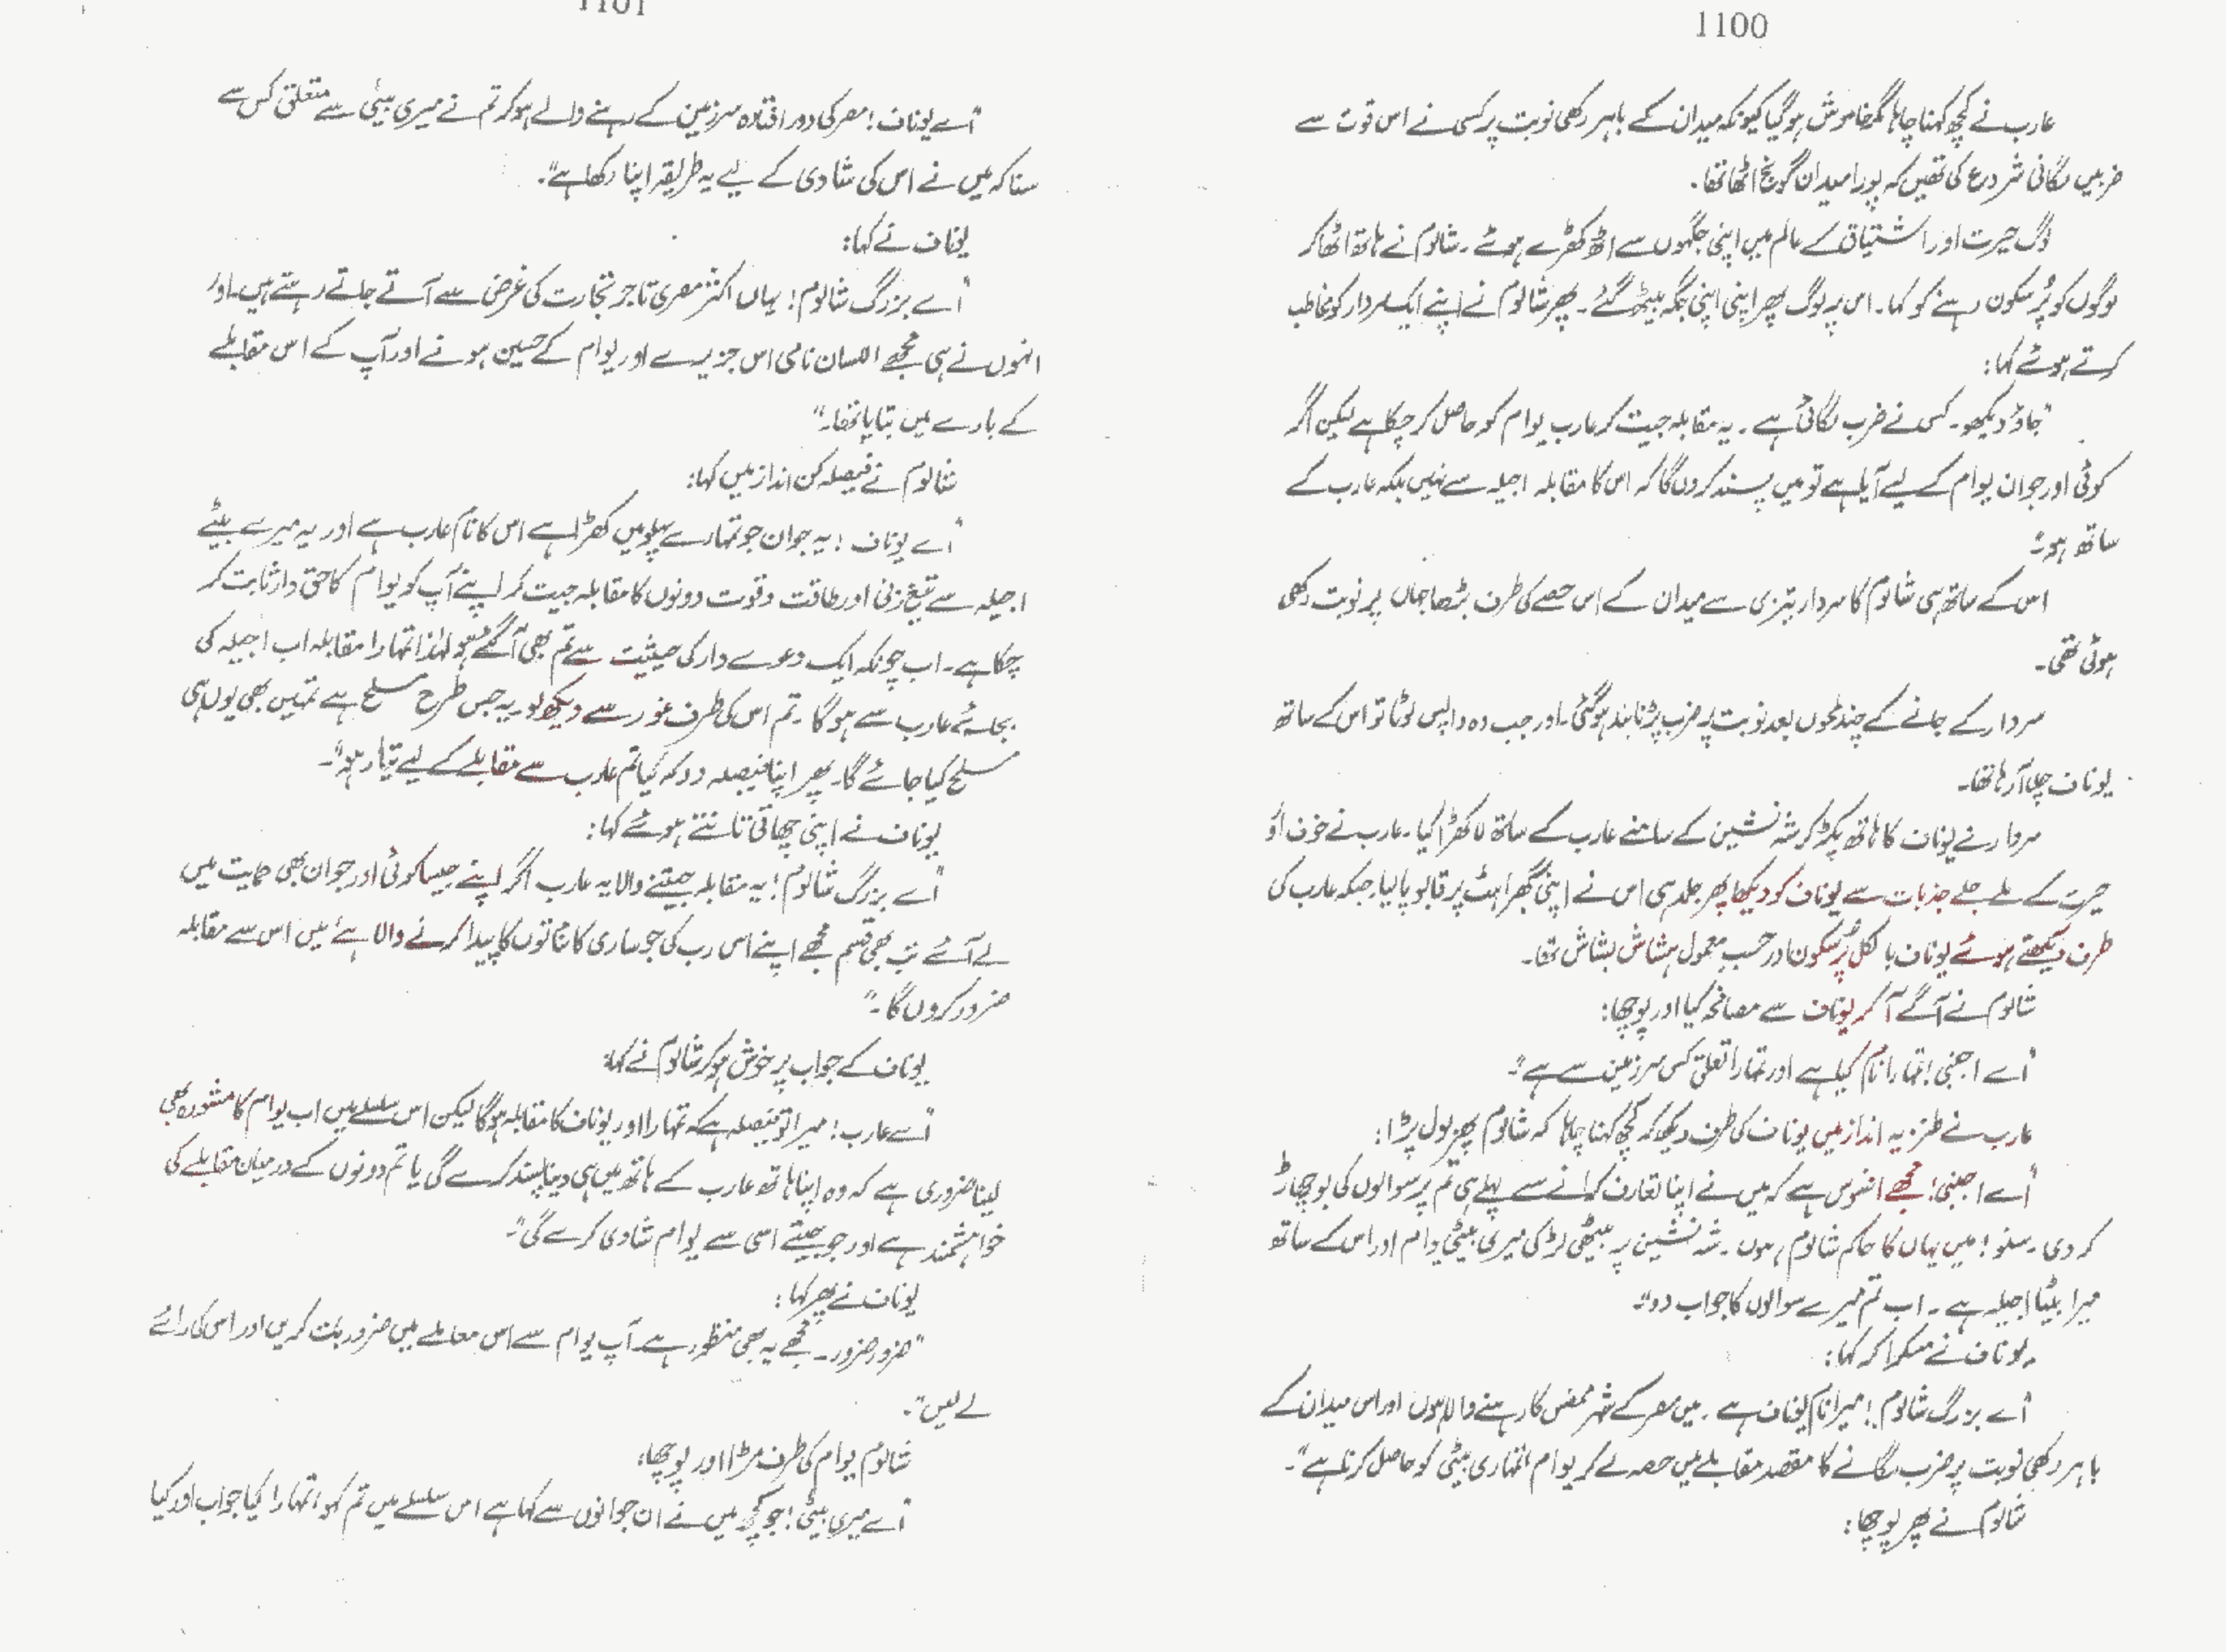 1100
عارب نے کچھ کہنا چاہا مگر خاموش ہو گیا کیونکہ میدان کے باہر رکھی نوبت پر کسی نے اس قوت سے
ضربیں لگانی شروع کی تھیں کہ پورا میدان گونج اٹھا تھا۔
لوگ حیرت اور اشتیاق کے عالم میں اپنی جگہوں سے اٹھ کھڑے ہوئے۔ شالوم نے ہاتھ اٹھا کر
لوگوں کو پُرسکون رہنے کو کہا۔ اس پر لوگ پھر اپنی اپنی جگہ بیٹھ گئے۔ پھر شالوم نے اپنے ایک سردار کو مخاطب
کرتے ہوئے کہا:
"جاؤ دیکھو۔ کس نے ضرب لگائی ہے۔ یہ مقابلہ جیت کر عارب یوام کو حاصل کر چکا ہے لیکن اگر
کوئی اور جوان یوام کے لیے آیا ہے تو میں پسند کروں گا کہ اس کا مقابلہ اجیلہ سے نہیں بلکہ عارب کے
ساتھ ہو"۔
اس کے ساتھ ہی شالوم کا سردار تیزی سے میدان کے اس حصے کی طرف بڑھا جہاں پر نوبت رکھی
ہوئی تھی۔
سردار کے جانے کے چند لمحوں بعد نوبت پر ضرب پڑنا بند ہو گئی۔ اور جب وہ واپس لوٹا تو اس کے ساتھ
یوناف چلا آ رہا تھا۔
سردار نے یوناف کا ہاتھ پکڑ کر شہ نشین کے سامنے عارب کے ساتھ لا کھڑا کیا۔ عارب نے خوف اور
حیرت کے ملے جلے جذبات سے یوناف کو دیکھا پھر جلد ہی اس نے اپنی گھبراہٹ پر قابو پا لیا جبکہ عارب کی
طرف دیکھتے ہوئے یوناف بالکل پُرسکون اور حسب معمول ہشاش بشاش تھا۔
شالوم نے آگے آ کر یوناف سے مصافحہ کیا اور پوچھا:
"اے اجنبی! تمہارا نام کیا ہے اور تمہارا تعلق کس سرزمین سے ہے"۔
عارب نے طنزیہ انداز میں یوناف کی طرف دیکھ کر کچھ کہنا چاہا کہ شالوم پھر بول پڑا:
"اے اجنبی! مجھے افسوس ہے کہ میں نے اپنا تعارف کرانے سے پہلے ہی تم پر سوالوں کی بوچھاڑ
کر دی۔ سنو! میں یہاں کا حاکم شالوم ہوں۔ شہ نشین پر بیٹھی لڑکی میری بیٹی یوام اور اس کے ساتھ
میرا بیٹا اجیلہ ہے۔ اب تم میرے سوالوں کا جواب دو"۔
یوناف نے مسکرا کر کہا:
"اے بزرگ شالوم! میرا نام یوناف ہے۔ میں مصر کے شہر ممفس کا رہنے والا ہوں اور اس میدان کے
باہر رکھی نوبت پر ضرب لگانے کا مقصد مقابلے میں حصہ لے کر یوام تمہاری بیٹی کو حاصل کرنا ہے"۔
شالوم نے پھر پوچھا:
1101
"اے یوناف! مصر کی دور افتادہ سرزمین کے رہنے والے ہو کر تم نے میری بیٹی سے متعلق کس سے
سنا کہ میں نے اس کی شادی کے لیے یہ طریقہ اپنا رکھا ہے"۔
یوناف نے کہا:
"اے بزرگ شالوم! یہاں اکثر مصری تاجر تجارت کی غرض سے آتے جاتے رہتے ہیں۔ اور
انہوں نے ہی مجھے السان نامی اس جزیرے اور یوام کے حسین ہونے اور آپ کے اس مقابلے
کے بارے میں بتایا تھا۔"
شالوم نے فیصلہ کن انداز میں کہا:
"اے یوناف! یہ جوان جو تمہارے پہلو میں کھڑا ہے اس کا نام عارب ہے اور یہ میرے بیٹے
اجیلہ سے تیغ زنی اور طاقت و قوت دونوں کا مقابلہ جیت کر اپنے آپ کو یوام کا حق دار ثابت کر
چکا ہے۔ اب چونکہ ایک دعوے دار کی حیثیت سے تم بھی آ گئے ہو لہٰذا تمہارا مقابلہ اب اجیلہ کی
بجائے عارب سے ہو گا۔ تم اس کی طرف غور سے دیکھ لو۔ یہ جس طرح مسلح ہے تمہیں بھی یوں ہی
مسلح کیا جائے گا۔ پھر اپنا فیصلہ دو کہ کیا تم عارب سے مقابلے کے لیے تیار ہو"۔
یوناف نے اپنی چھاتی تانتے ہوئے کہا:
"اے بزرگ شالوم! یہ مقابلہ جیتنے والا یہ عارب اگر اپنے جیسا کوئی اور جوان بھی حمایت میں
لے آئے تب بھی قسم مجھے اپنے اس رب کی جو ساری کائناتوں کا پیدا کرنے والا ہے میں اس سے مقابلہ
ضرور کروں گا۔"
یوناف کے جواب پر خوش ہو کر شالوم نے کہا:
"اے عارب! میرا تو فیصلہ ہے کہ تمہارا اور یوناف کا مقابلہ ہو گا لیکن اس سلسلے میں اب یوام کا مشورہ بھی
لینا ضروری ہے کہ وہ اپنا ہاتھ عارب کے ہاتھ میں ہی دینا پسند کرے گی یا تم دونوں کے درمیان مقابلے کی
خواہشمند ہے اور جو جیتے اسی سے یوام شادی کرے گی"۔
یوناف نے پھر کہا:
"ضرور ضرور۔ مجھے یہ بھی منظور ہے۔ آپ یوام سے اس معاملے میں ضرور بات کریں اور اس کی رائے
لے لیں"۔
شالوم یوام کی طرف مڑا اور پوچھا:
"اے میری بیٹی! جو کچھ میں نے ان جوانوں سے کہا ہے اس سلسلے میں تم کہو، تمہارا کیا جواب اور کیا